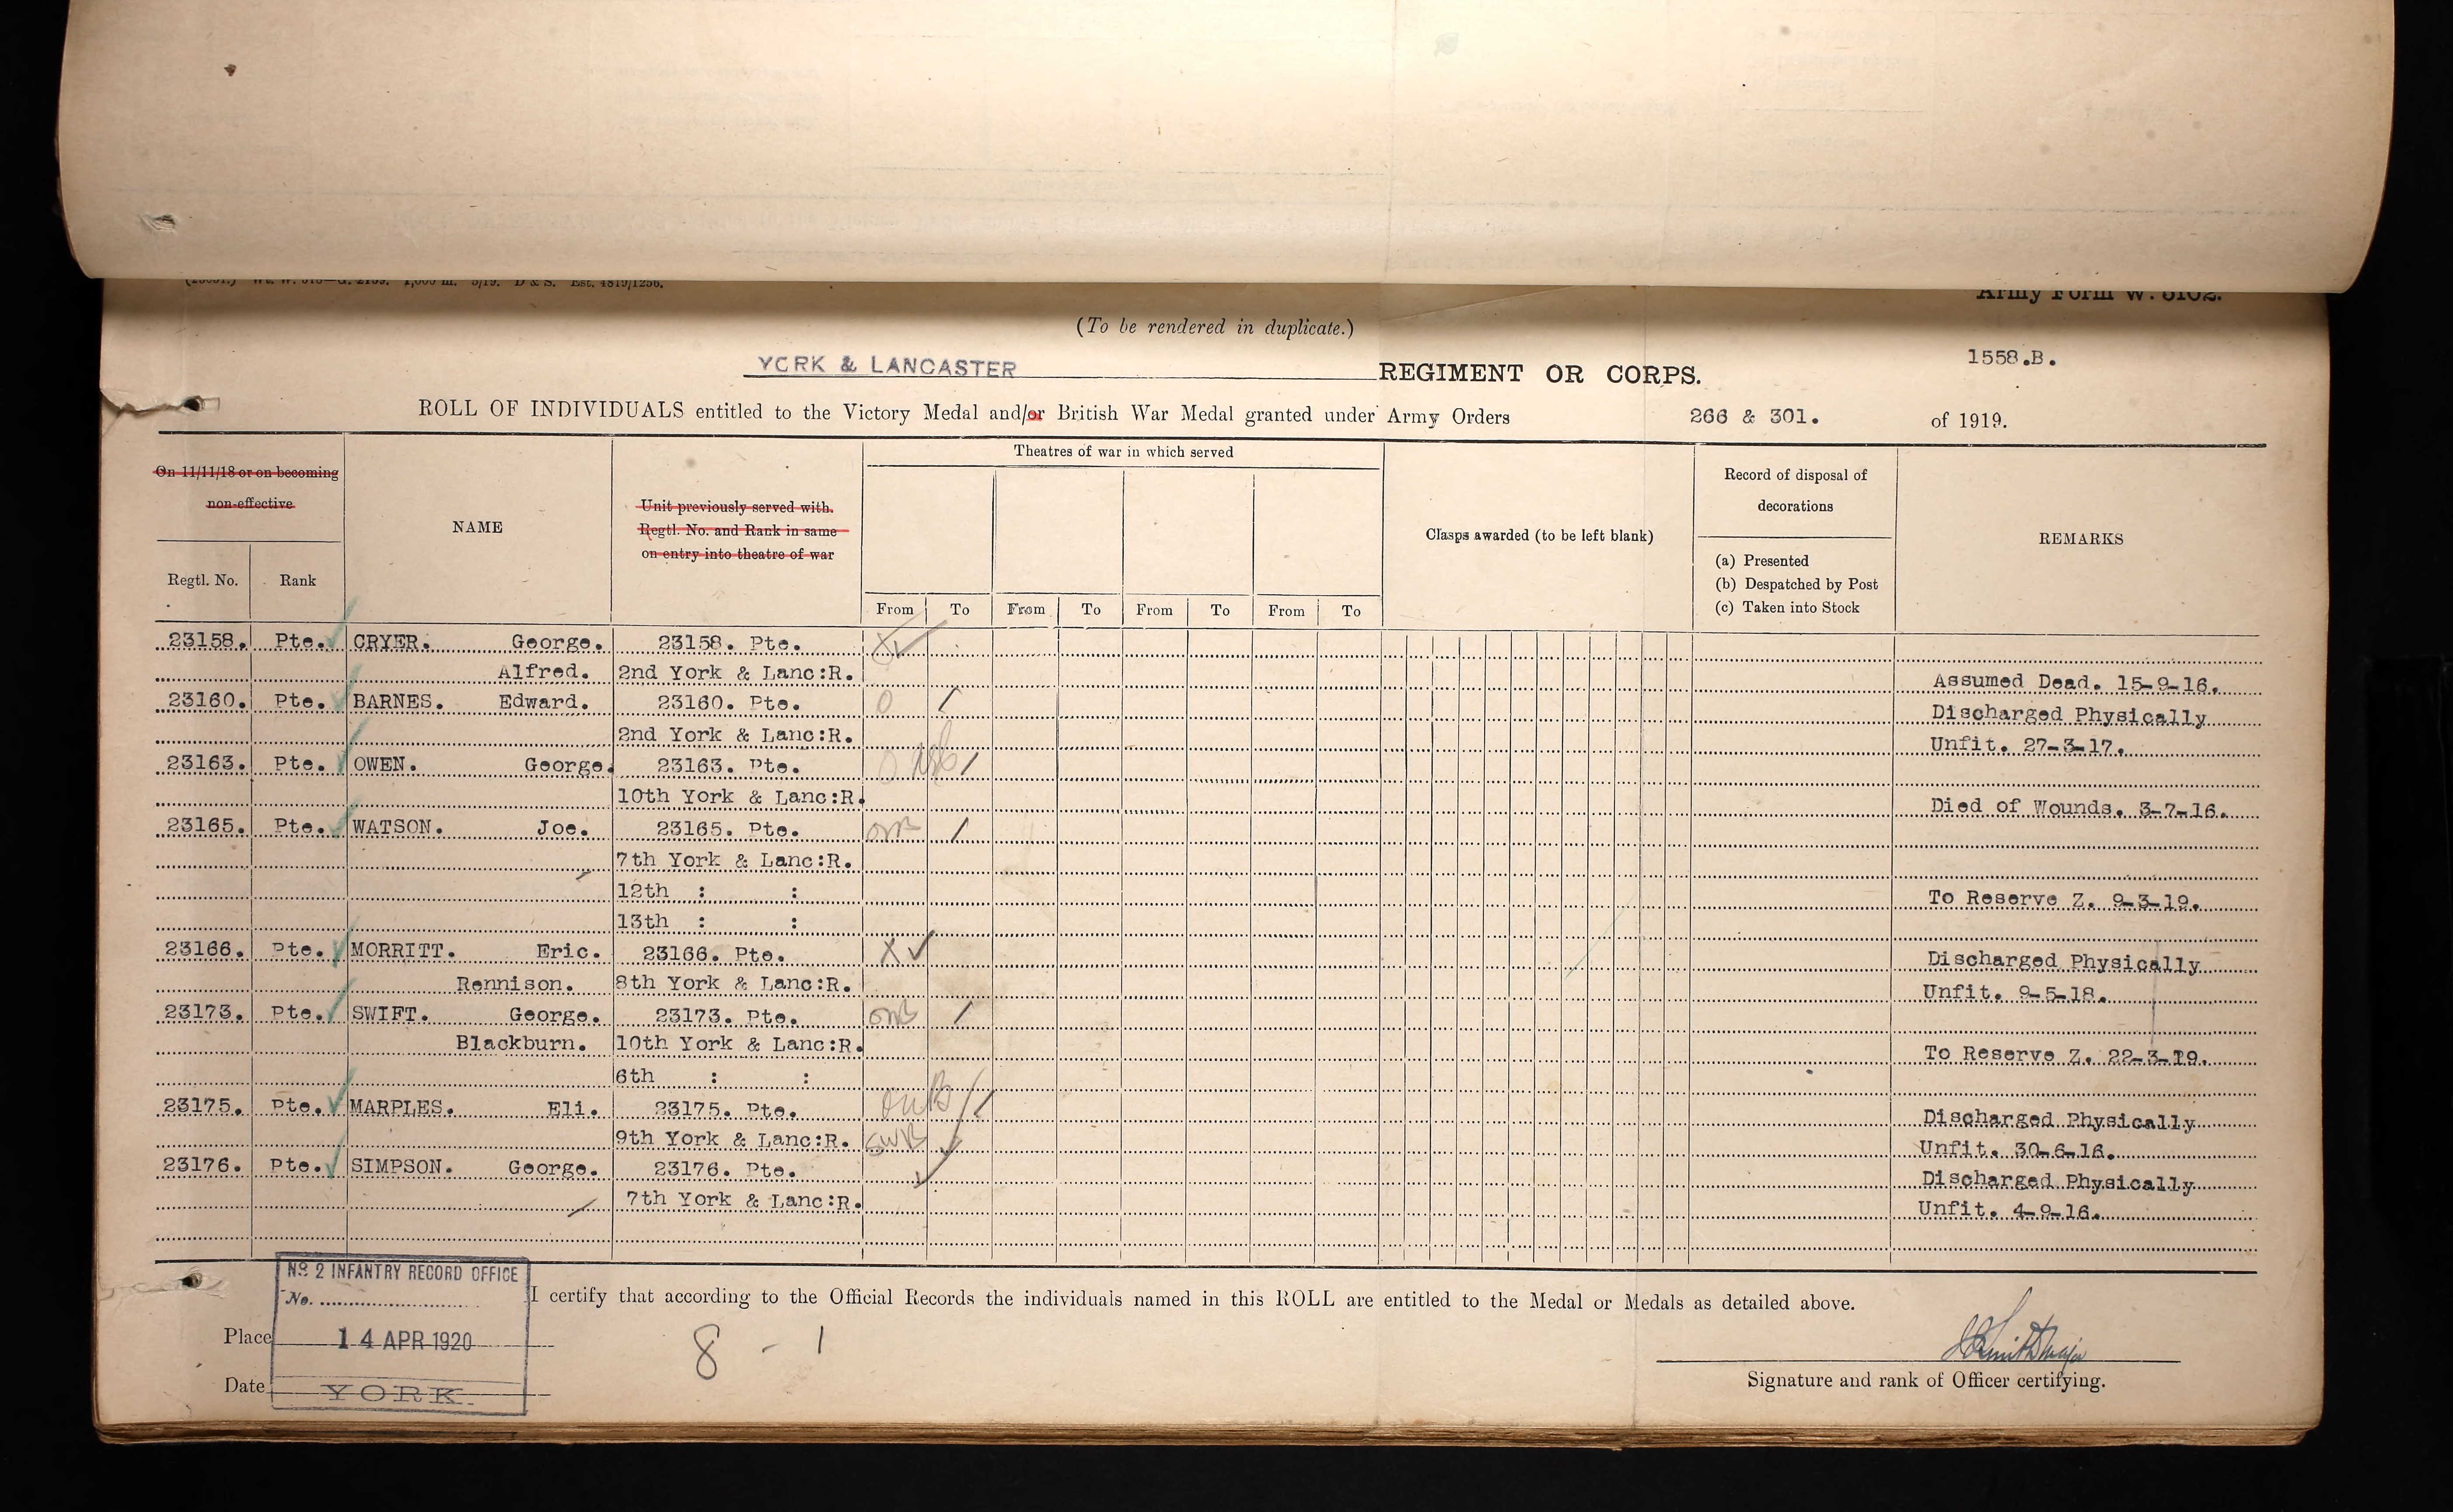 (To be rendered in duplicate.)
YORK & LANCASTER REGIMENT OR CORPS. 1558.B.
ROLL OF INDIVIDUALS entitled to the Victory Medal and/or British War Medal granted under Army Orders 266 & 301. of 1919.
On 11/11/18 or on becoming non-effective
Regtl. No. Rank
NAME
Unit previously served with.
Regtl. No. and Rank in same
on entry into theatre of war
Theatres of war in which served
From To From To From To From To
Clasps awarded (to be left blank)
Record of disposal of
decorations
(a) Presented
(b) Despatched by Post
(c) Taken into Stock
REMARKS
23158. Pte. CRYER. George. 23158. Pte.
Alfred. 2nd York & Lanc:R. Assumed Dead. 15-9-16.
23160. Pte. BARNES. Edward. 23160. Pte. O Discharged Physically
2nd York & Lanc:R. Unfit. 27-3-17.
23163. Pte. OWEN. George. 23163. Pte.
10th York & Lanc:R. Died of Wounds. 3-7-16.
23165. Pte. WATSON. Joe. 23165. Pte.
7th York & Lanc:R.
12th : : To Reserve Z. 9-3-19.
13th : :
23166. Pte. MORRITT. Eric. 23166. Pte. X Discharged Physically
Rennison. 8th York & Lanc:R. Unfit. 9-5-18.
23173. Pte. SWIFT. George. 23173. Pte.
Blackburn. 10th York & Lanc:R. To Reserve Z. 22-3-19.
6th : :
23175. Pte. MARPLES. Eli. 23175. Pte. Discharged Physically
9th York & Lanc:R. SWB Unfit. 30-6-16.
23176. Pte. SIMPSON. George. 23176. Pte. Discharged Physically
7th York & Lanc:R. Unfit. 4-9-16.
No 2 INFANTRY RECORD OFFICE
No.
I certify that according to the Official Records the individuals named in this ROLL are entitled to the Medal or Medals as detailed above.
Place 14 APR 1920
8 - 1
Date YORK.
Signature and rank of Officer certifying.